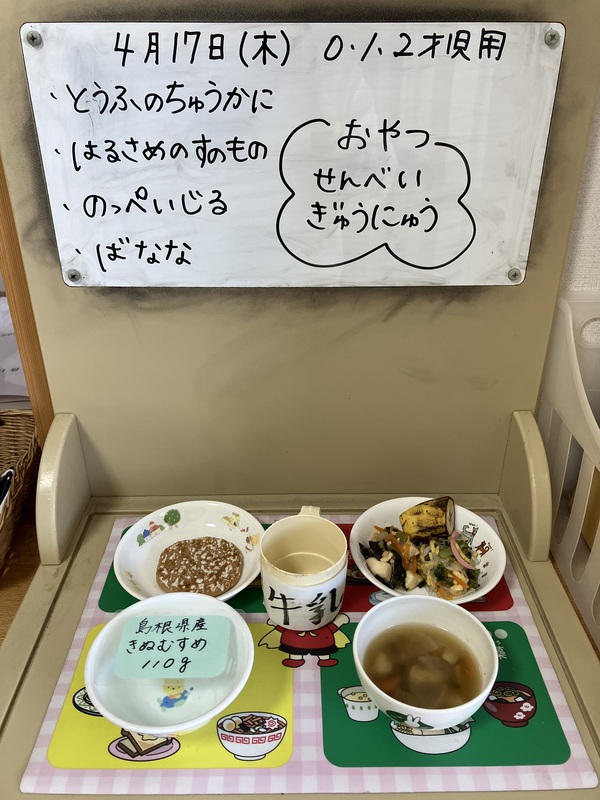 4月17日(木) 0.1.2才児用
・とうふのちゅうかに
・はるさめのすのもの
・のっぺいじる
・ばなな
おやつ
せんべい
ぎゅうにゅう
牛乳
島根県産
きぬむすめ
110g